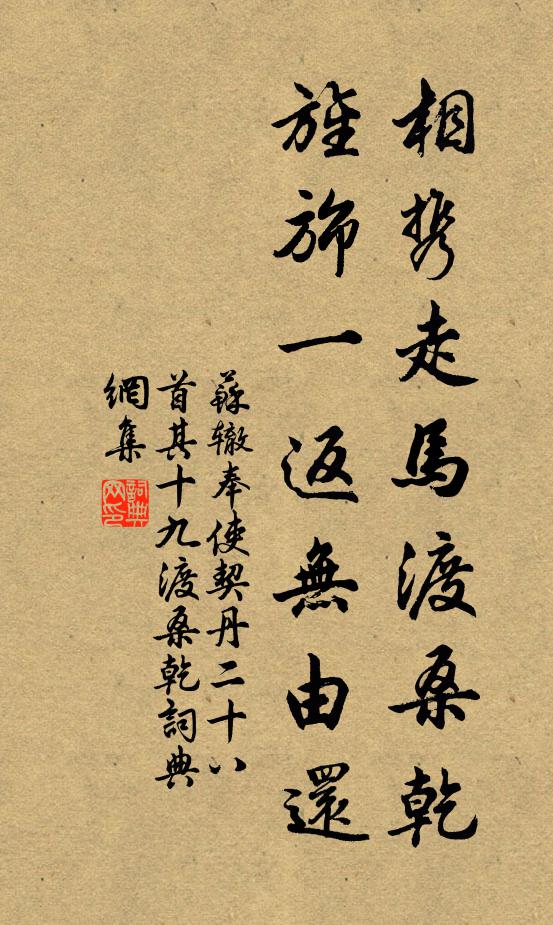 相攜走馬渡桑乾
旌旆一返無由還
蘇轍奉使契丹二十八
首其十九渡桑乾詞典
網集
詞典網印